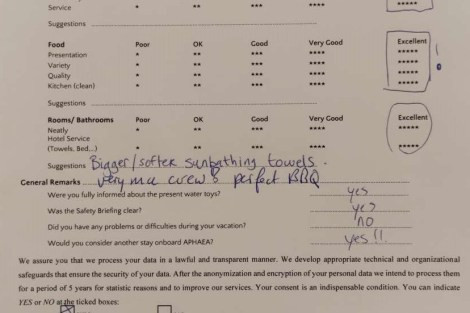 Service ** *** **** *****
Suggestions
Food Poor OK Good Very Good Excellent
Presentation * ** *** **** *****
Variety * ** *** **** *****
Quality * ** *** **** *****
Kitchen (clean) * ** *** **** *****
Suggestions
Rooms/ Bathrooms Poor OK Good Very Good Excellent
Neatly * ** *** **** *****
Hotel Service
(Towels, Bed...) * ** *** **** *****
Suggestions Bigger/softer sunbathing towels.
General Remarks very crew & perfect BBQ
Were you fully informed about the present water toys? yes
Was the Safety Briefing clear? yes
Did you have any problems or difficulties during your vacation? NO
Would you consider another stay onboard APHAEA? yes!!
We assure you that we process your data in a lawful and transparent manner. We develop appropriate technical and organizational
safeguards that ensure the security of your data. After the anonymization and encryption of your personal data we intend to process them
for a period of 5 years for statistic reasons and to improve our services. Your consent is an indispensable condition. You can indicate
YES or NO at the ticked boxes: